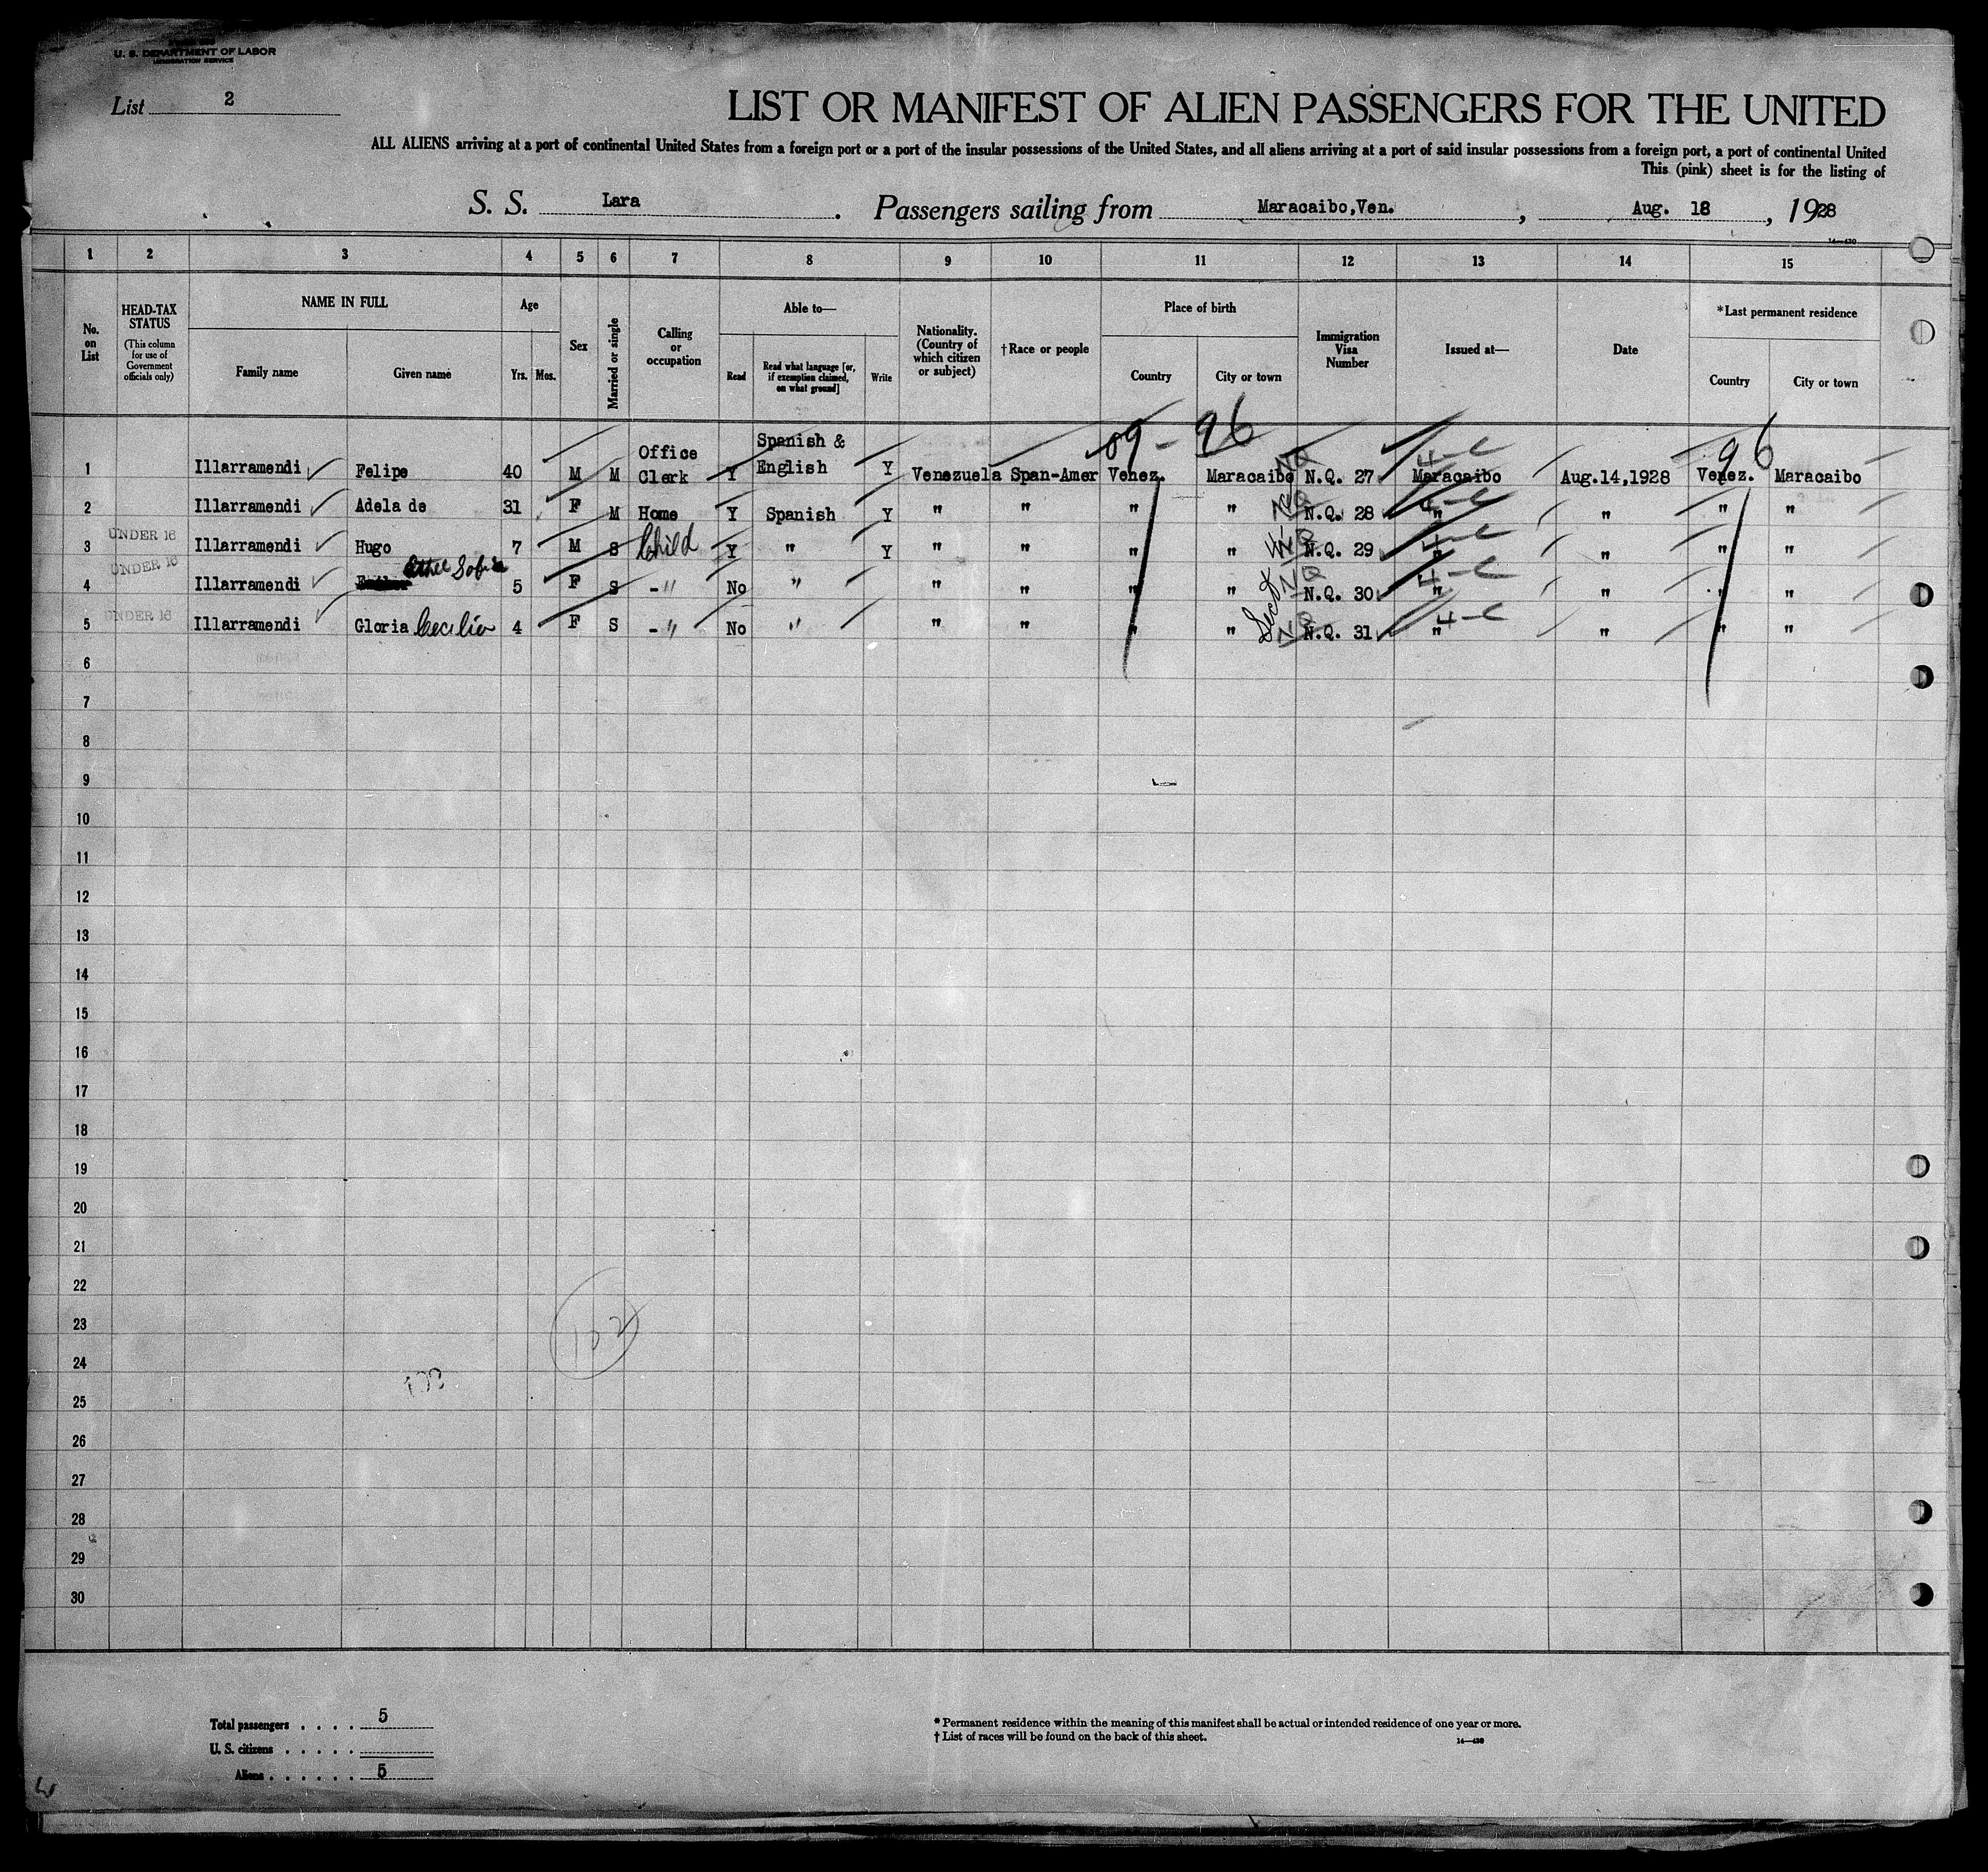 U. S. DEPARTMENT OF LABOR
IMMIGRATION SERVICE
List 2
LIST OR MANIFEST OF ALIEN PASSENGERS FOR THE UNITED
ALL ALIENS arriving at a port of continental United States from a foreign port or a port of the insular possessions of the United States, and all aliens arriving at a port of said insular possessions from a foreign port, a port of continental United
This (pink) sheet is for the listing of
S. S. Lara. Passengers sailing from Maracaibo,Ven., Aug. 18, 1928
14—430
1 2 3 4 5 6 7 8 9 10 11 12 13 14 15
No. on List
HEAD-TAX STATUS (This column for use of Government officials only)
NAME IN FULL
Family name Given name
Age
Yrs. Mos.
Sex
Married or single
Calling or occupation
Able to—
Read
Read what language [or, if exemption claimed, on what ground]
Write
Nationality. (Country of which citizen or subject)
†Race or people
Place of birth
Country City or town
Immigration Visa Number
Issued at—
Date
*Last permanent residence
Country City or town
09 - 96 96
1 Illarramendi Felipe 40 M M Office Clerk Y Spanish & English Y Venezuela Span-Amer Venez. Maracaibo NQ N.Q. 27 4-c Maracaibo Aug.14,1928 Venez. Maracaibo
2 Illarramendi Adela de 31 F M Home Y Spanish Y " " " " NQ N.Q. 28 4-c " " " "
UNDER 16 3 Illarramendi Hugo 7 M S Child Y " Y " " " " NQ N.Q. 29 4-c " " " "
UNDER 16 4 Illarramendi Sofia 5 F S -" No " " " " " NQ N.Q. 30 4-c " " " "
UNDER 16 5 Illarramendi Gloria Cecilia 4 F S -" No " " " " " NQ N.Q. 31 4-c " " " "
6
7
8
9
10
11
12
13
14
15
16
17
18
19
20
21
22
23
102
24
25
26
27
28
29
30
Total passengers . . . . 5
U. S. citizens . . . . .
Aliens . . . . . . 5
* Permanent residence within the meaning of this manifest shall be actual or intended residence of one year or more.
† List of races will be found on the back of this sheet.
14—430